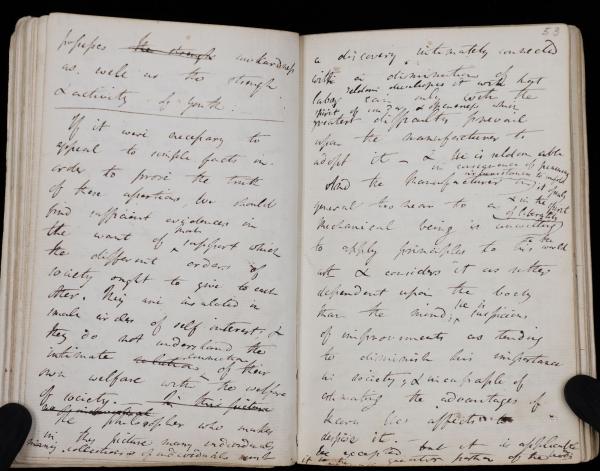 possesses the strength awkwardness
as well as the strength
& activity of Youth
If it were necessary to
appeal to simple facts in
order to prove the truth
of these assertions, we should
find sufficient evidences in
the want of support which
the different orders of
society ought to give to each
other. They are insulated in
small circles of self interest, &
they do not understand the
intimate relations connection of their
own welfare with the welfare
of society. In this picture
The philosopher who makes
in this picture many individuals
many collections of individuals must
53
a discovery intimately connected
with a diminution of
labor seldom develops it with
can only with the
spirit of & openness when
greatest difficulty prevail
upon the manufacturer to
adopt it — & he is seldom able
in consequence of pecuniary
circumstances to
And the manufacturer in
& in the spirit
of liberality
general too near to a
Mechanical being is unwilling
to apply principles to his
art & considers it as rather
dependent upon the body
than the mind; he is suspicious
of improvements as tending
to diminish his importance
in society; & incapable of
estimating the advantages of
theory he affects to
despise it.
be excepted but it is applicable
to the greater portion of